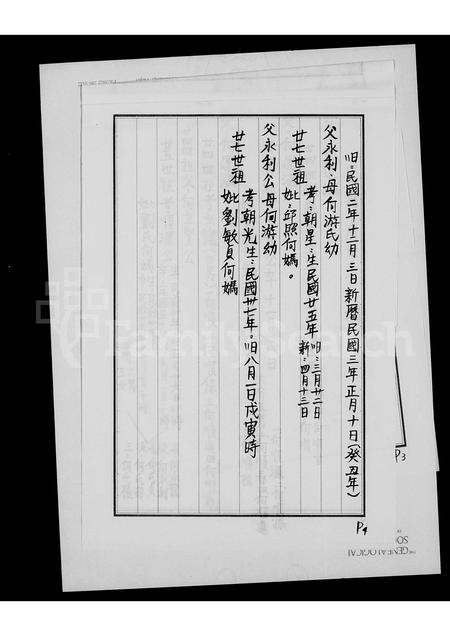 旧:民國二年十二月三日新曆民國三年正月十日(癸丑年)
父永利、母何游氏幼
廿七世祖 考:朝星:生民國廿五年 旧:三月廿二日
新:四月十三日
妣:邱熙何媽。
父永利公母何游幼
廿七世祖 考朝光生:民國卅七年.旧八月一日戊寅時
妣劉敏貞何媽
P4
P3
FamilySearch
THE GENEALOGICAL
SO